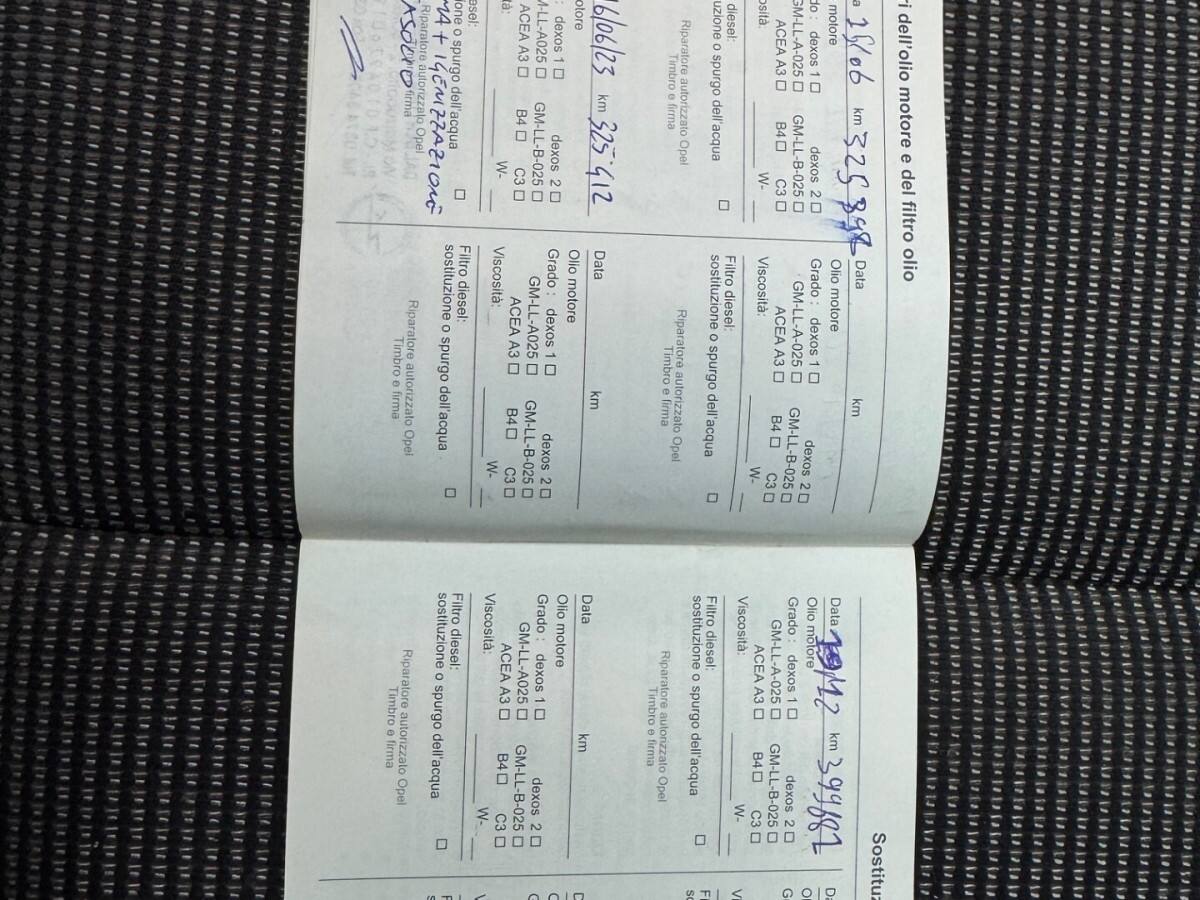 ri dell'olio motore e del filtro olio
a 15/06 km 325 398
motore
do : dexos 1 ☐ dexos 2 ☐
GM-LL-A-025 ☐ GM-LL-B-025 ☐
ACEA A3 ☐ B4 ☐ C3 ☐
osità: W-
diesel:
uzione o spurgo dell'acqua ☐
Riparatore autorizzato Opel
Timbro e firma
16/06/23 km 325.412
otore
: dexos 1 ☐ dexos 2 ☐
M-LL-A025 ☐ GM-LL-B-025 ☐
ACEA A3 ☐ B4 ☐ C3 ☐
tà: W-
esel:
one o spurgo dell'acqua ☐
MA + IGENIZZAZIONE
Riparatore autorizzato Opel
firma
Data km
Olio motore
Grado : dexos 1 ☐ dexos 2 ☐
GM-LL-A-025 ☐ GM-LL-B-025 ☐
ACEA A3 ☐ B4 ☐ C3 ☐
Viscosità: W-
Filtro diesel:
sostituzione o spurgo dell'acqua ☐
Riparatore autorizzato Opel
Timbro e firma
Data km
Olio motore
Grado : dexos 1 ☐ dexos 2 ☐
GM-LL-A025 ☐ GM-LL-B-025 ☐
ACEA A3 ☐ B4 ☐ C3 ☐
Viscosità: W-
Filtro diesel:
sostituzione o spurgo dell'acqua ☐
Riparatore autorizzato Opel
Timbro e firma
Sostituz
Data 19/12 km 399681
Olio motore
Grado : dexos 1 ☐ dexos 2 ☐
GM-LL-A-025 ☐ GM-LL-B-025 ☐
ACEA A3 ☐ B4 ☐ C3 ☐
Viscosità: W-
Filtro diesel:
sostituzione o spurgo dell'acqua ☐
Riparatore autorizzato Opel
Timbro e firma
Data km
Olio motore
Grado : dexos 1 ☐ dexos 2 ☐
GM-LL-A025 ☐ GM-LL-B-025 ☐
ACEA A3 ☐ B4 ☐ C3 ☐
Viscosità: W-
Filtro diesel:
sostituzione o spurgo dell'acqua ☐
Riparatore autorizzato Opel
Timbro e firma